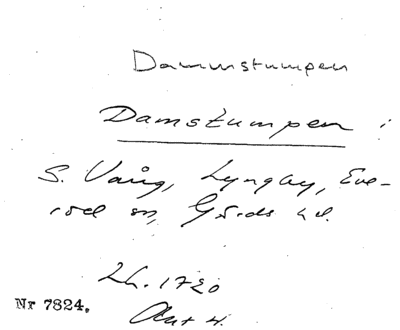 Dammstumpen
Damstumpen :
S. Vång, Lyngby, Eve-
röd sn, Gärds hd.
Lh. 1720
Akt 4.
Nr 7824.